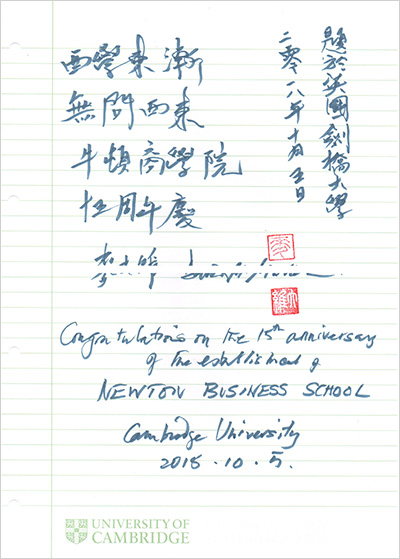 西學東漸
無問西東
牛頓商學院
十五周年慶
題於英國劍橋大學
二零一八年十月五日
Congratulations on the 15th anniversary
of the establishment of
NEWTON BUSINESS SCHOOL
Cambridge University
2018.10.5.
UNIVERSITY OF
CAMBRIDGE